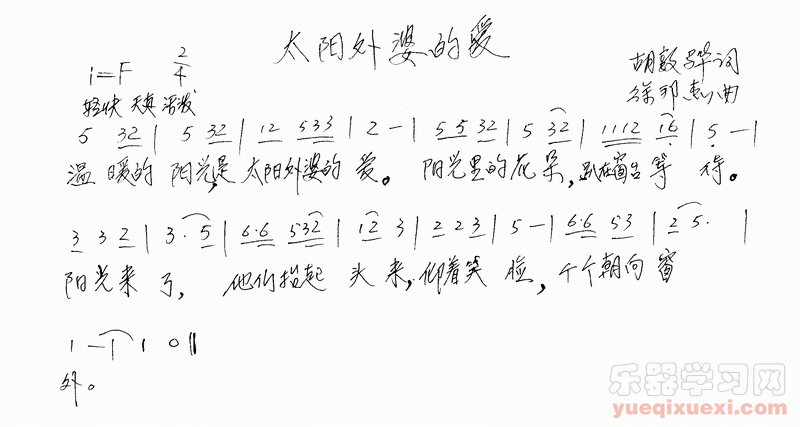 太阳外婆的爱
1=F 2/4
胡敦华词
徐邦杰曲
轻快 天真 活泼
5 32 | 5 32 | 12 533 | 2 - | 55 32 | 5 32 | 1112 16 | 5 - |
温暖的 阳光,是 太阳外婆的 爱。 阳光里的花朵, 趴在窗台等 待。
3 3 2 | 3. 5 | 6.6 532 | 12 3 | 2 2 3 | 5 - | 6.6 53 | 2 5. |
阳光来 了, 他们抬起 头 来,仰着笑 脸, 个个朝向 窗
1 - | 1 0 ‖
外。
乐器学习网
yueqixuexi.com